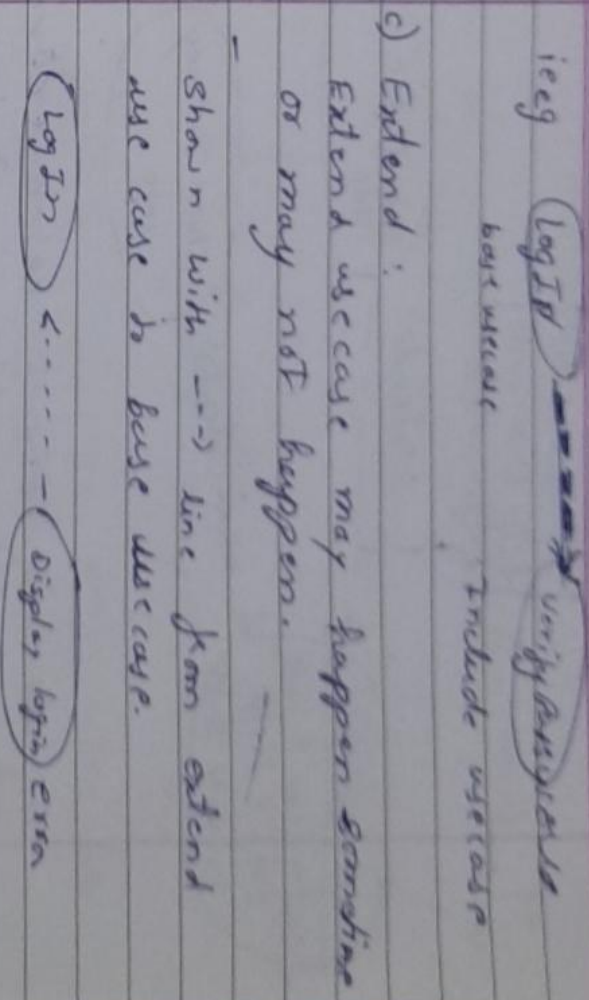 ieeg LogIn ----> Verify Password
base usecase Include usecase
c) Extend :
Extend usecase may happen sometime
or may not happen.
- shown with ---> line from extend
use case to base usecase.
LogIn <----- Display login error